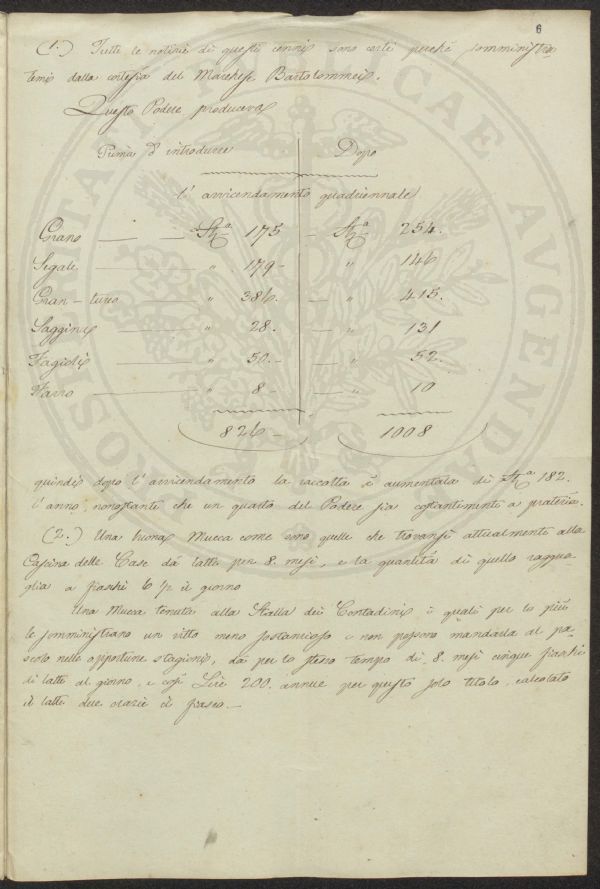 6
(1.) Tutte le notizie di questi cenni sono certe perchè somministra-
temi dalla cortesia del Marchese Bartolommei.
Questo Podere produceva
Prima d'introdurre Dopo
l'avvicendamento quadriennale
Grano Sta 175 - Sta 254.
Segale " 179 - " 146
Gran-turco " 386. - " 415.
Saggina " 28. - " 131
Fagioli " 50. - " 52.
Farro " 8 - " 10
826 - 1008
quindi dopo l'avvicendamento la raccolta è aumentata di Sta 182.
l'anno, nonostante che un quarto del Podere sia costantemente a prateria.
(2.) Una buona Mucca come sono quelle che trovansi attualmente alla
Cascina delle Case dà latte per 8. mesi, e la quantità di quello raggua-
glia a fiaschi 6 1/2 il giorno
Una Mucca tenuta alla Stalla dei Contadini i quali per lo più
le somministrano un vitto meno sostanzioso e non possono mandarla al pa-
scolo nelle opportune stagioni, dà per lo stesso tempo di 8. mesi cinque fiaschi
di latte al giorno, e così Lire 200. annue per questo solo titolo, calcolato
il latte due crazie il fiasco. -